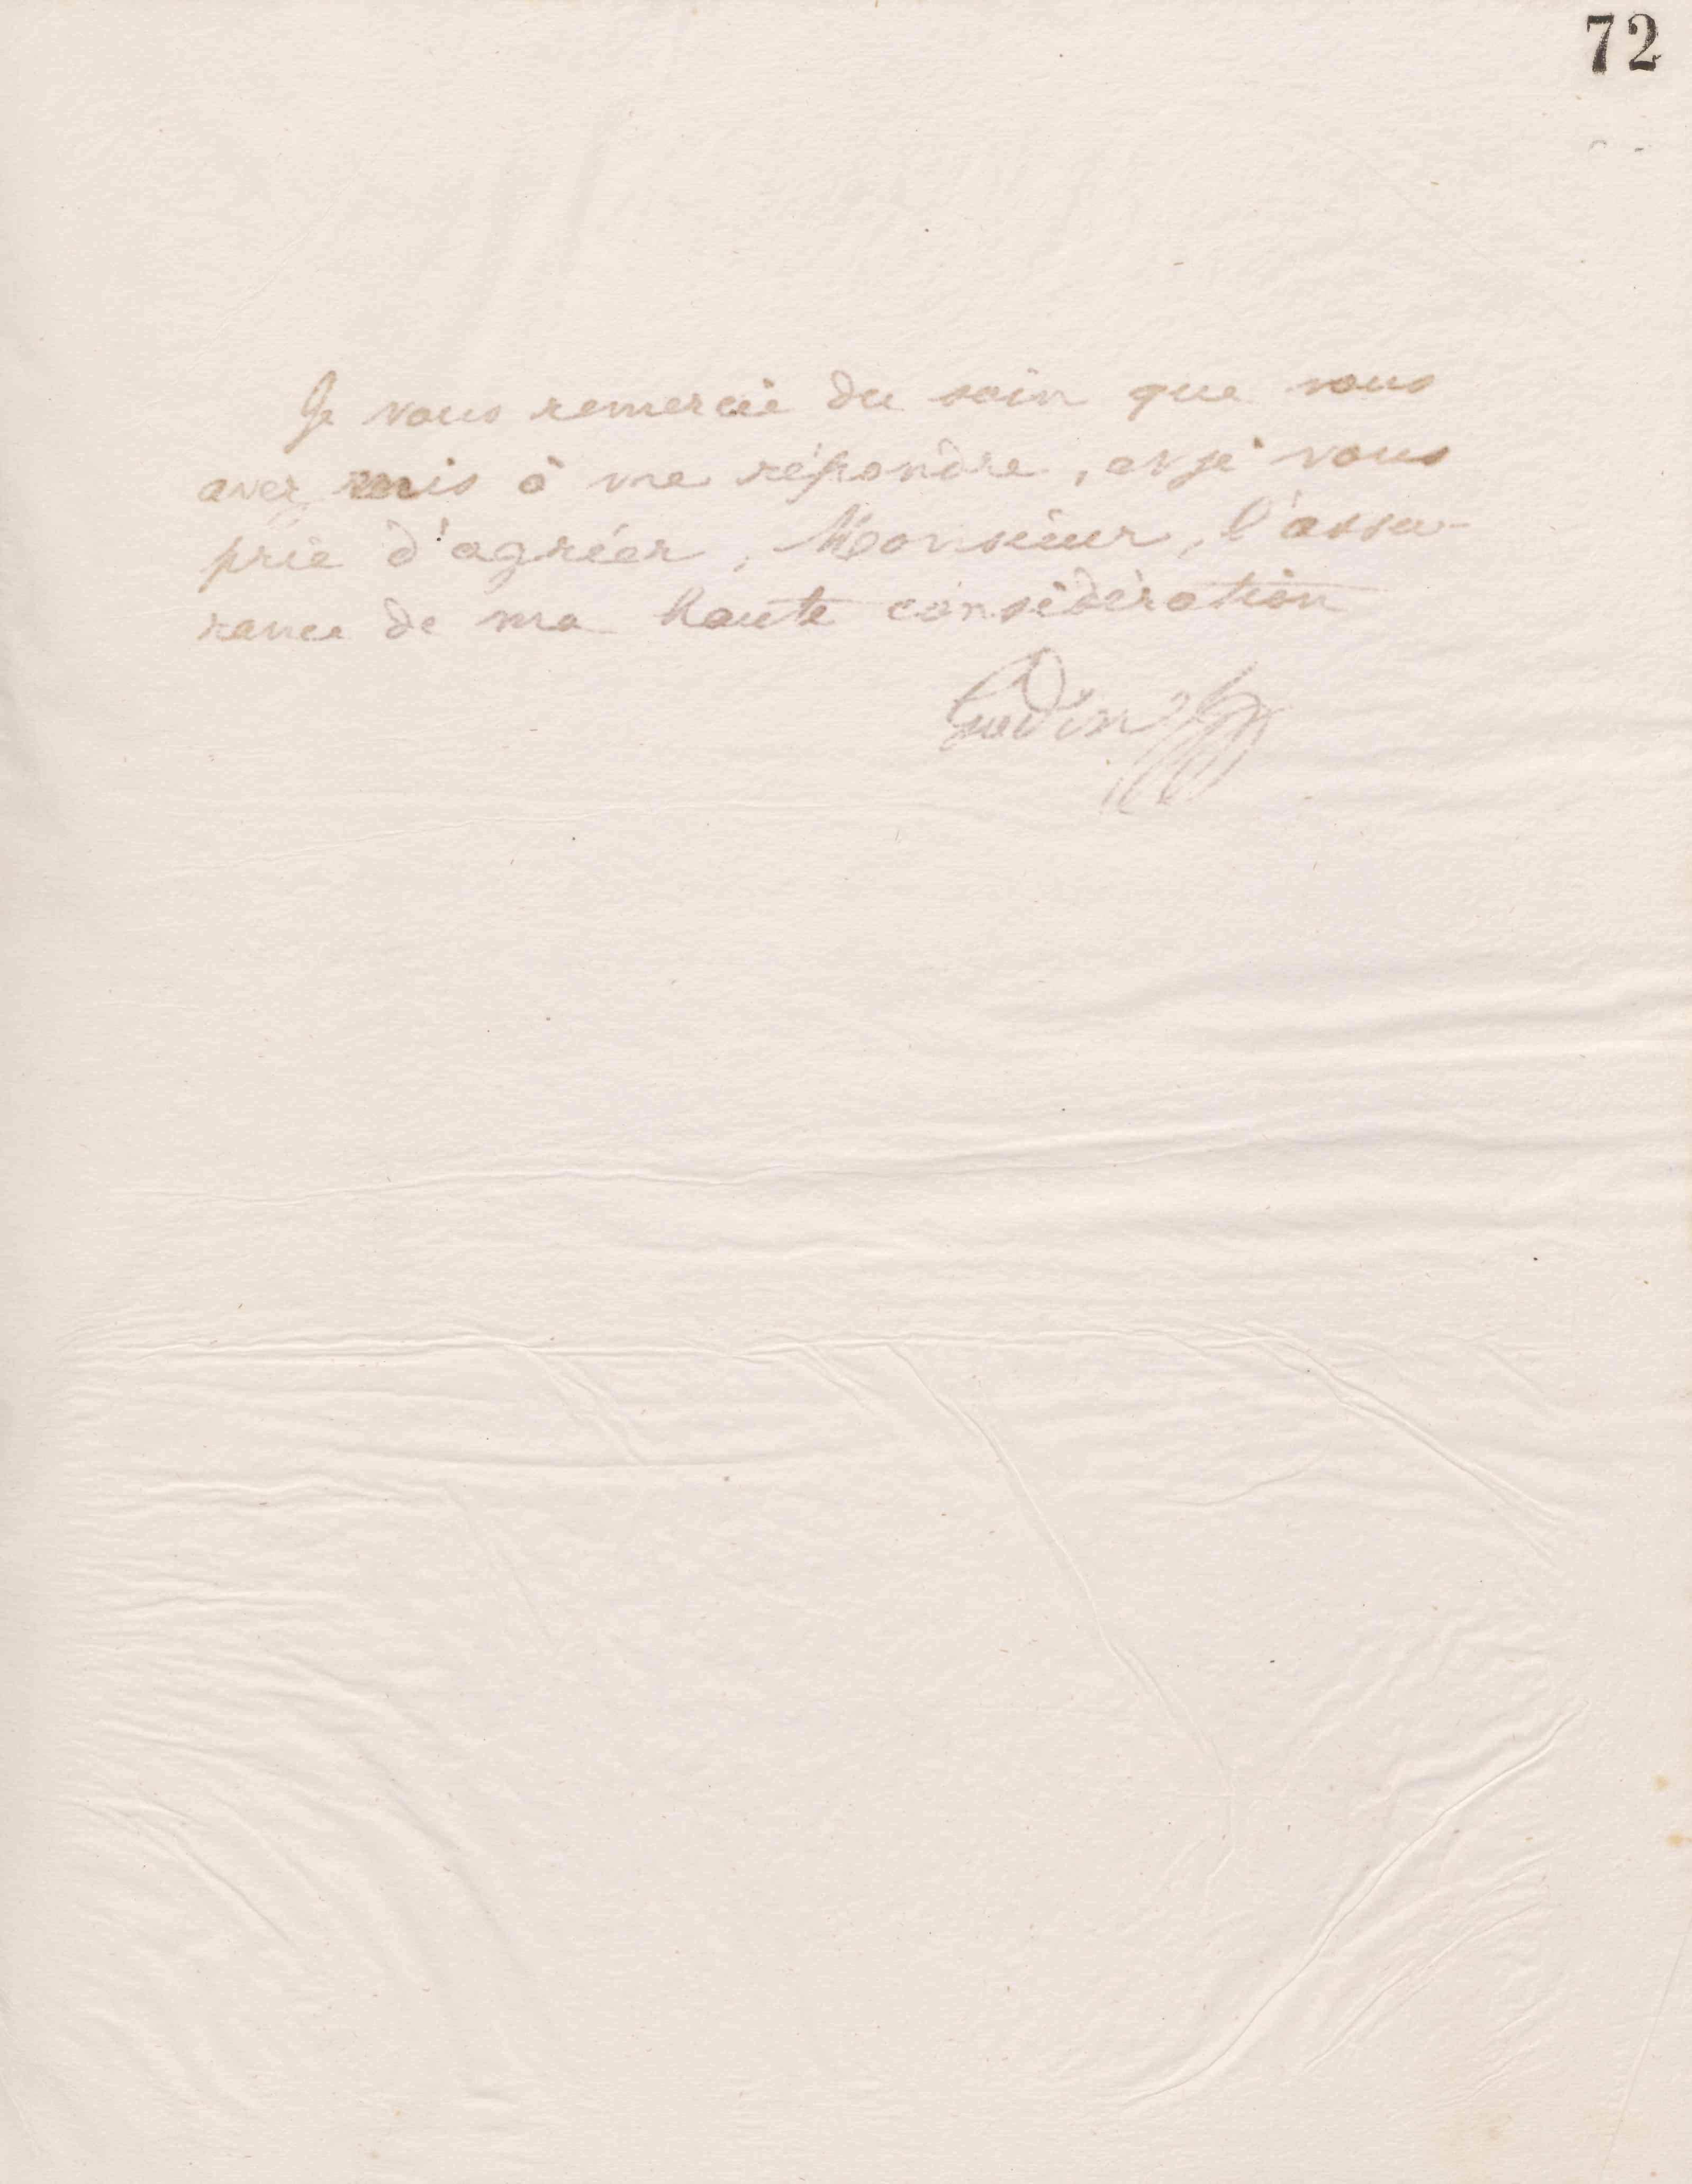 72
Je vous remercie du soin que vous
avez mis à me répondre, et je vous
prie d'agréer, Monsieur, l'assu-
rance de ma haute considération
Godin